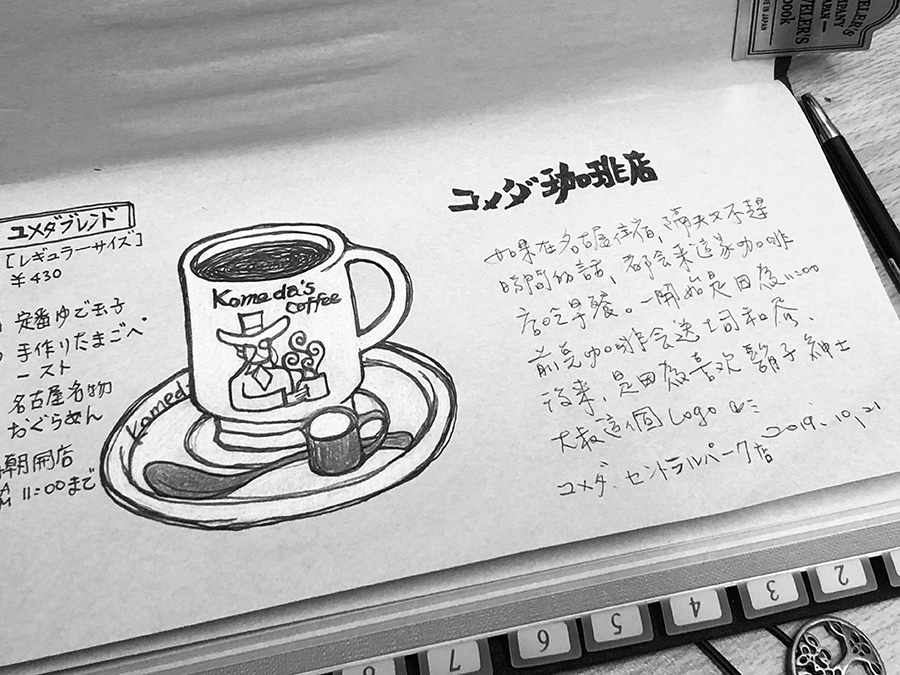 コメダブレンド
[レギュラーサイズ]
¥430
定番ゆで玉子
手作りたまごペ
ースト
名古屋名物
おぐらあん
朝開店
AM 11:00まで
Komeda's
coffee
Komed
コメダ珈琲店
如果在名古屋住宿,隔天又不趕
時間的話,都会来這家咖啡
店吃早餐。一開始是因為11:00
前 咖啡会送土司和
後来,是因為喜欢鬍子紳士
大叔這個Logo
コメダ、セントラルパーク店 2019.10.21
ELER'S
MPANY
PAN
VELER'S
ebook
E IN JAPAN
2
3
4
5
6
7
8